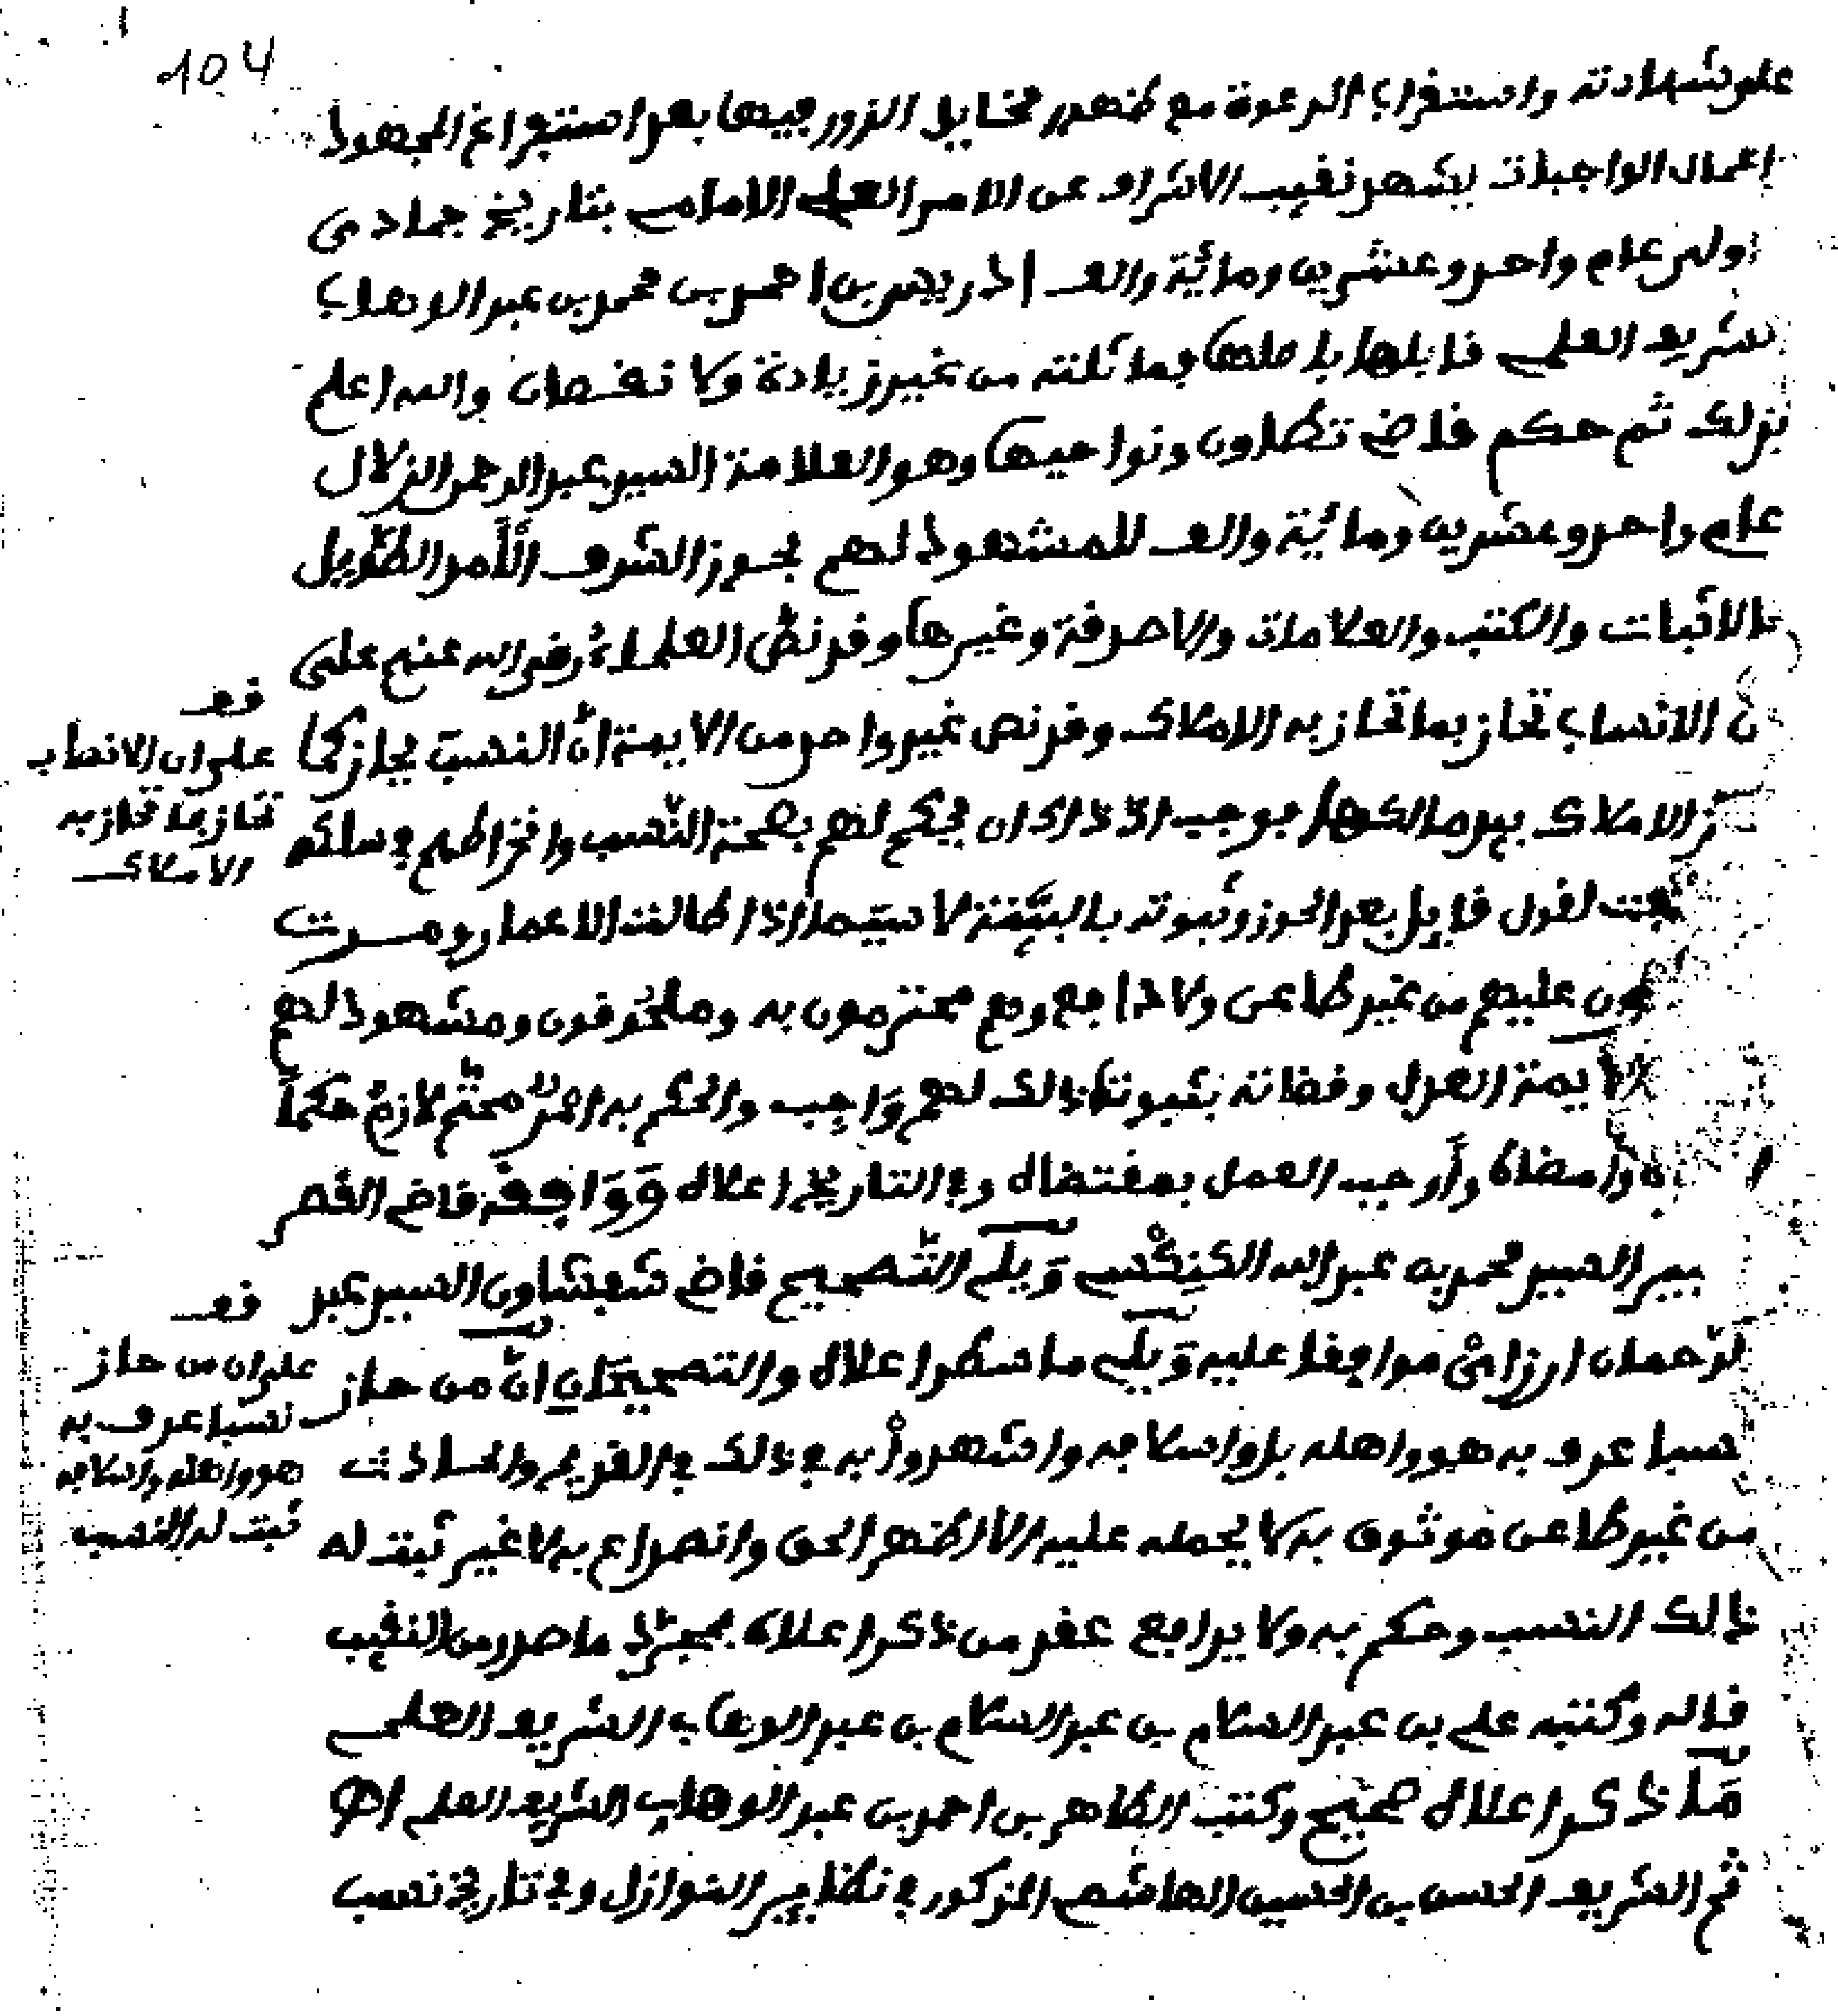 104
على شهادته واستغراب الدعوة مع ظهور مخايل الزور فيها بعد استفراغ المجهود
إعمال الواجبات يشهر نقيب الاشراف عن الامر العلي الامامي بتاريخ جمادى
اولى عام واحد وعشرين ومائة والف ادريس بن احمد بن محمد بن عبد الوهاب
الشريف العلمي قابلها باصلها فماثلته من غير زيادة ولا نقصان والله اعلم
بذلك ثم حكم قاضي تطاون ونواحيها وهو العلامة السيد عبد الرحمن الزلال
عام واحد وعشرين ومائة والف للمشهود لهم بحوز الشرف الأمد الطويل
بالاثبات والكتب والعلامات والاصدقة وغيرها وقد نص العلماء رضي الله عنهم على
أن الانساب تحاز بما تحاز به الاملاك وقد نص غير واحد من الايمة أن النسب يحاز كما
الاملاك بيد مالكها فوجب اذ ذاك ان يحكم لهم بصحة النسب وانخراطهم في سلكه
يلتفت لقول قايل بعد الحوز وثبوته بالبينة لا سيما اذا طالت الاعمار ومرت
عليهم من غير طاعن ولا دافع وهم محترمون به ومعروفون ومشهود لهم
لأيمة العدل وقضاته بثبوت ذالك لهم وَاجب والحكم به امر محتم لازم حكماً
وامضاه وأوجب العمل بمقتضاه وفي التاريخ اعلاه وَوَافقه قاضي القصر
السيد محمد بن عبد الله الكنكسي وَيلي التصحيح قاضي شفشاون السيد عبد
الرحمان ارزاين موافقا عليه وَيلي ما سطر اعلاه والتصحيحان انّ من حاز
نسبا عرف به هو واهله باواسلافه واشهروا به في ذالك في القديم والحادث
من غير طاعن موثوق به لا يحمله عليه الا اظهار الحق وانصداع به لا غير ثبت له
ذالك النسب وحكم به ولا يرافع عقد من ذكر اعلاه بمجرد ما صدر من النقيب
قاله وكتبه علي بن عبد السلام بن عبد السلام بن عبد الوهاب الشريف العلمي
مَا ذكر اعلاه صحيح وكتب الطاهر بن احمد بن عبد الوهاب الشريف العلمي اهـ
ثم الشريف الحسن بن الحسين الهاشمي المذكور في نظاير النوازل وفي تاريخ نسب
قف
على ان الانساب
تحاز بما تحاز به
الاملاك
قف
على ان من حاز
نسبا عرف به
هو واهله واسلافه
ثبت له النسب